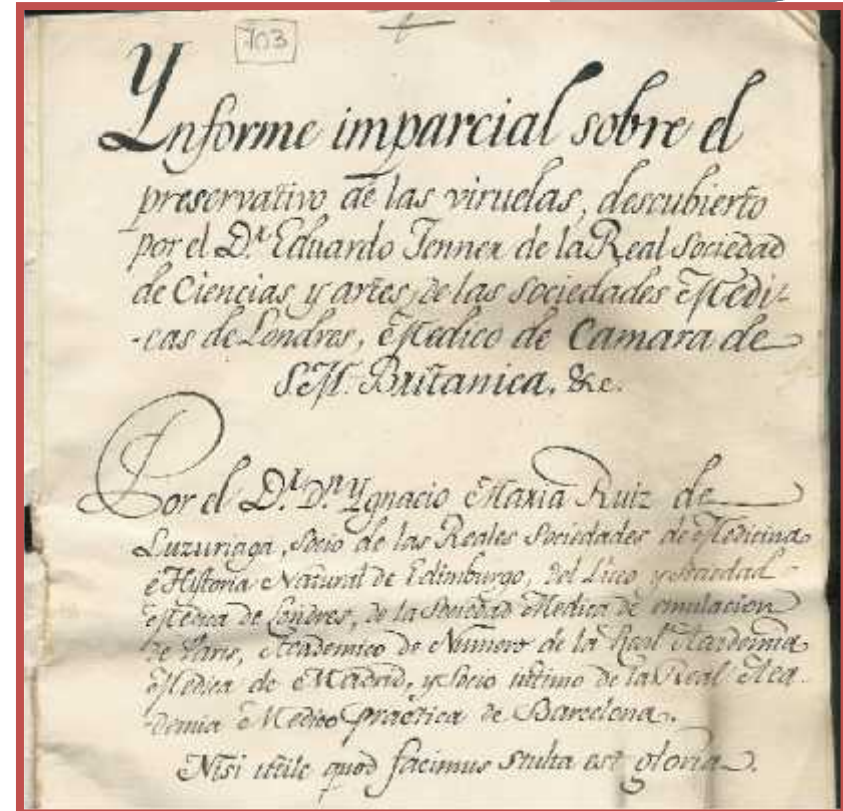 703
Ynforme imparcial sobre el
preservativo de las viruelas, descubierto
por el D.r Eduardo Jenner de la Real Sociedad
de Ciencias y artes, de las Sociedades Medi-
-cas de Londres, Medico de Camara de
S.M. Britanica. &c.
Por el D.r D.n Ygnacio Maria Ruiz de
Luzuriaga, Socio de las Reales Sociedades de Medicina
e Historia Natural de Edimburgo, del Liceo y Sociedad
Medica de Londres, de la Sociedad Medica de emulacion
de Paris, Academico de Numero de la Real Academia
Medica de Madrid, y Socio intimo de la Real Aca-
-demia Medico practica de Barcelona.
Nisi utile quod facimus stulta est gloria.